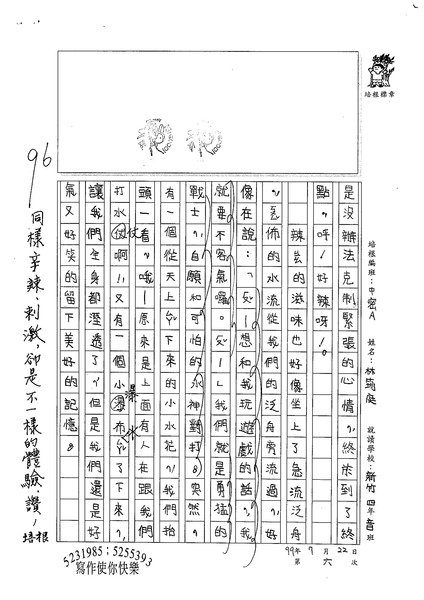 培根標章
培根編班：中密A 姓名：林琬庭 就讀學校：新竹 四年 音班
99年7月22日 第六次
是沒辦法克制緊張的心情，終於到了終
點，呼！好辣呀！。
辣的滋味也好像坐上了急流泛舟
，瀑佈的水流從我們的泛舟旁流過，好
像在說：「想和我玩遊戲的話，我
就要不客氣囉。」我們就是勇猛的
戰士，自願和可怕的水神戰打。突然，
有一個從天上下來的小水花，我們抬
頭一看，哦！原來是上面有人在跟我們
打水仗啊！又有一個小瀑布下來，
讓我們全身都溼透了，但是我們還是好
氣又好笑的留下美好的記憶。
仗
瀑
水
96
同樣辛辣、刺激，卻是不一樣的體驗，讚！
培根
5231985；5255393
寫作使你快樂